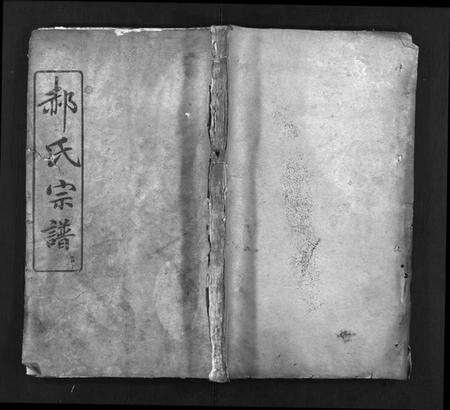 郝氏宗譜